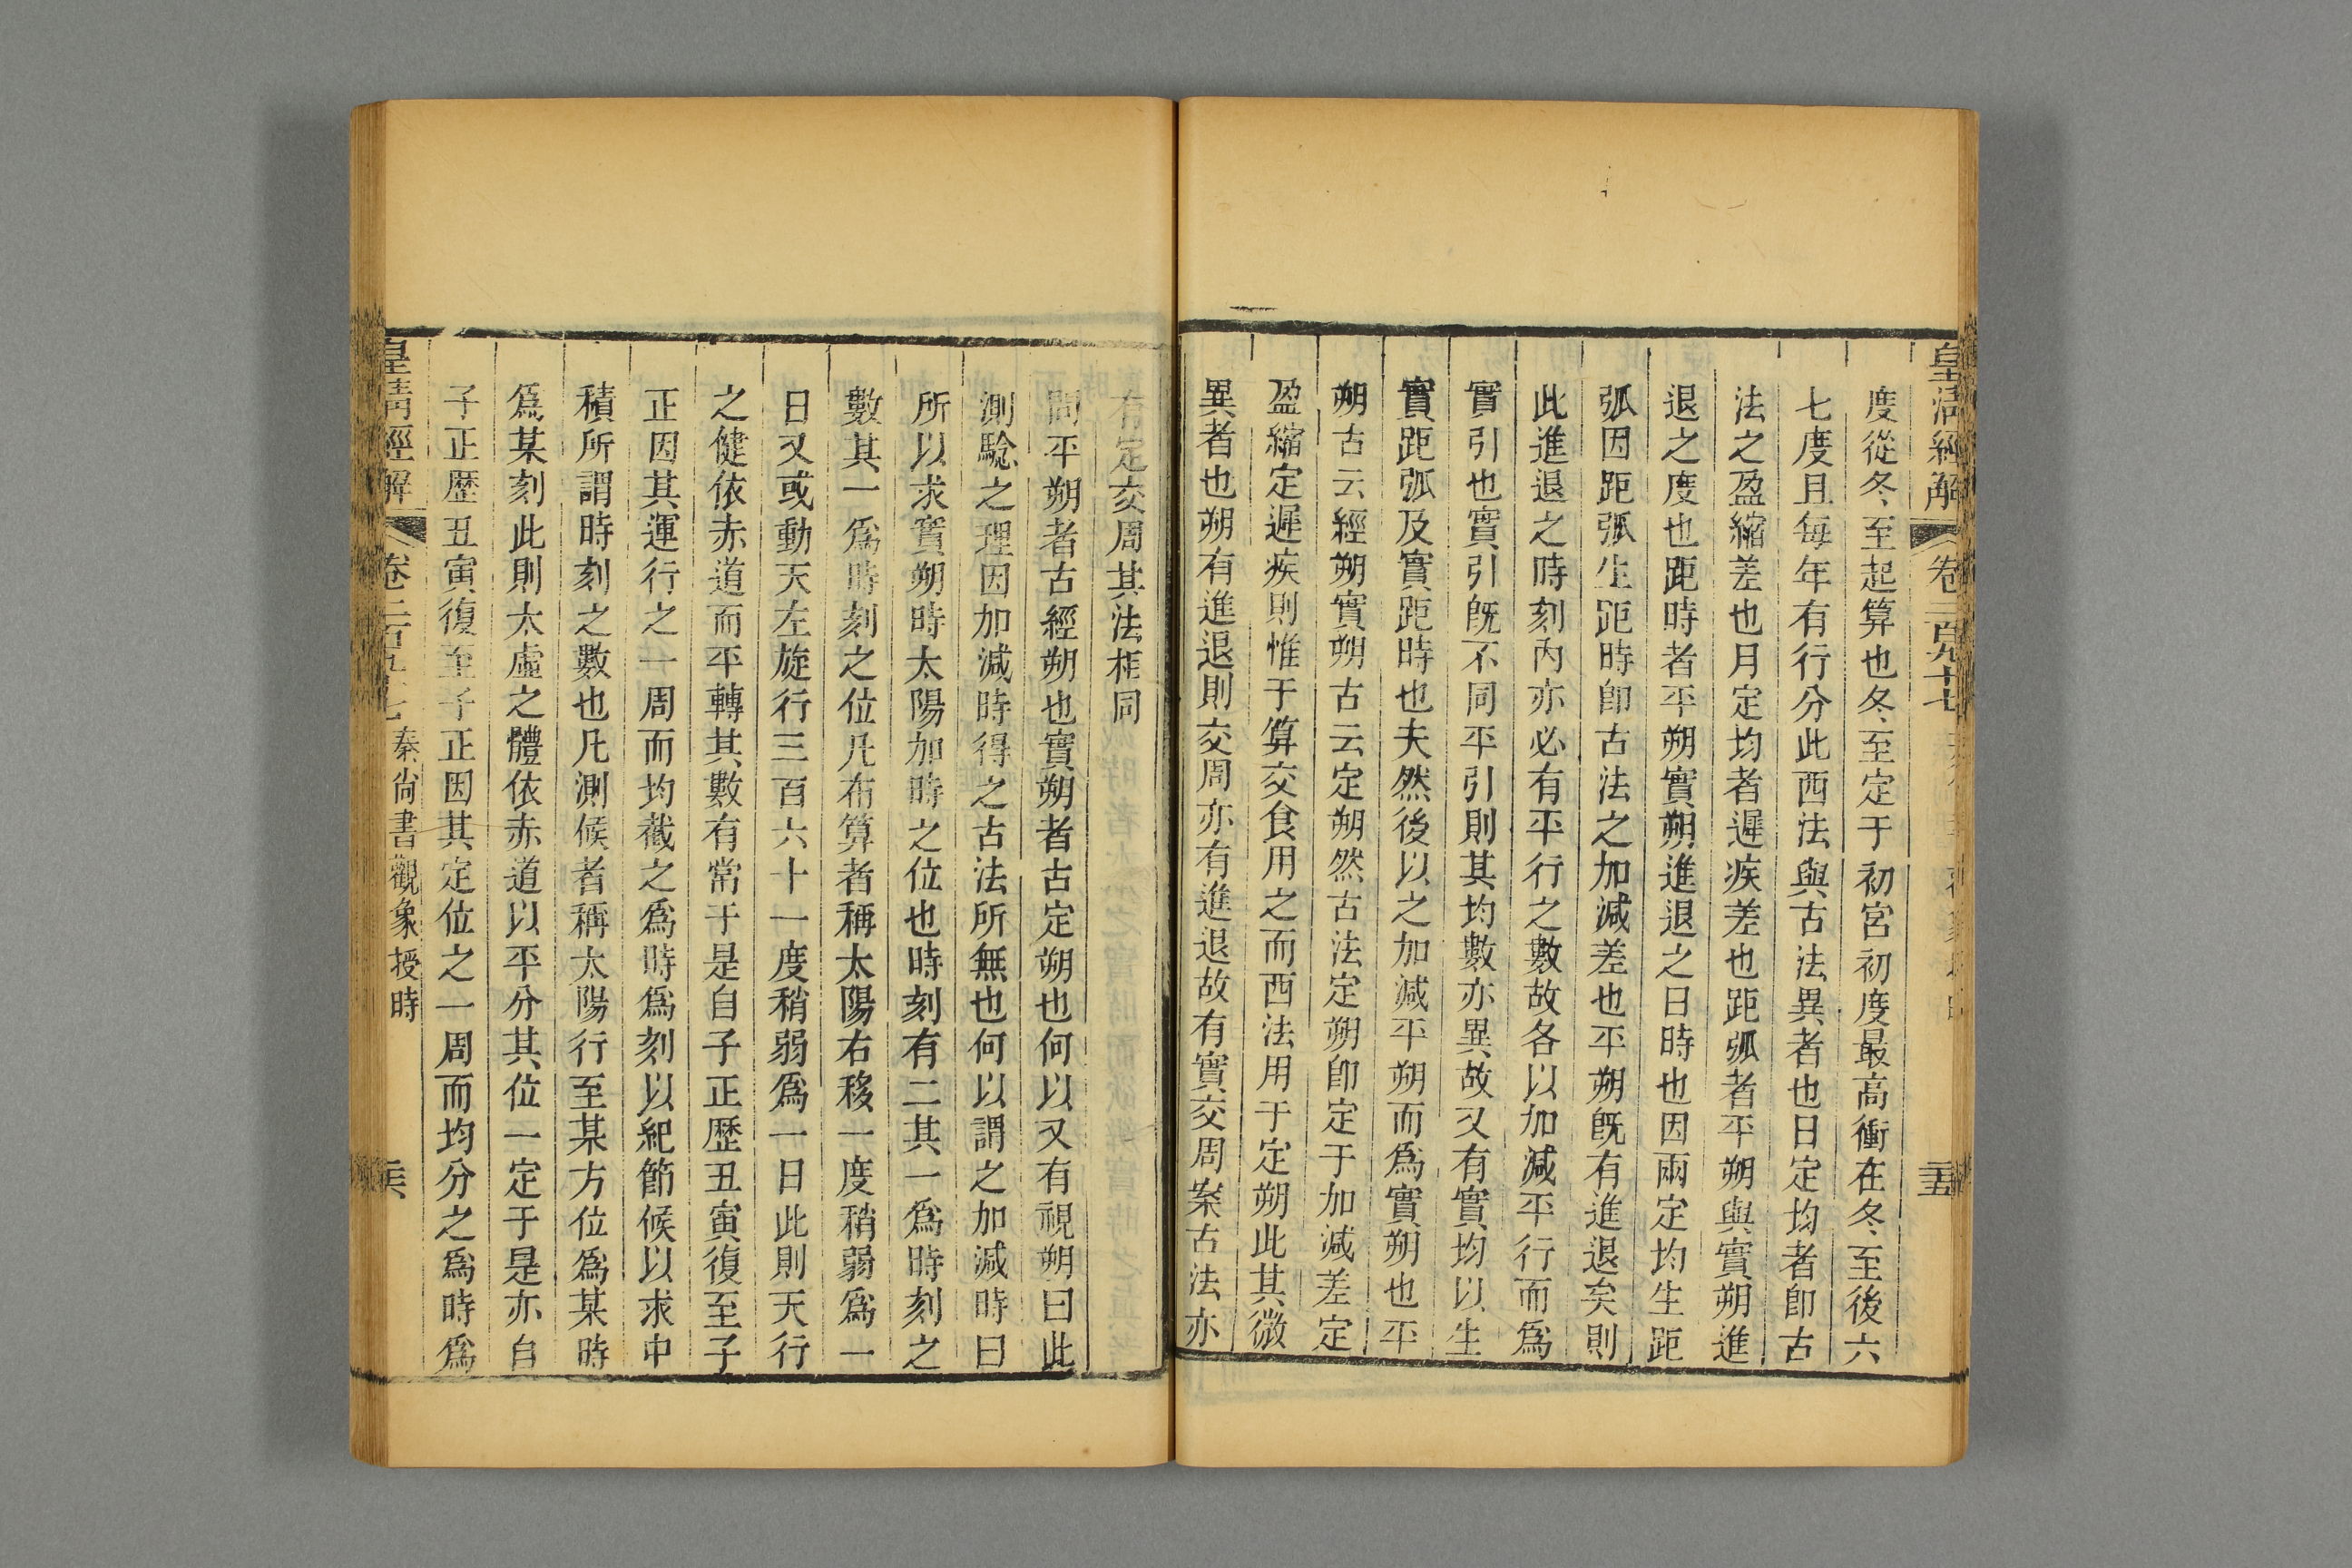 皇清經解 卷二百九十七
二十五
度從冬至起算也冬至定于初宮初度最高衝在冬至後六
七度且每年有行分此西法與古法異者也日定均者卽古
法之盈縮差也月定均者遲疾差也距弧者平朔與實朔進
退之度也距時者平朔實朔進退之日時也因兩定均生距
弧因距弧生距時卽古法之加減差也平朔旣有進退矣則
此進退之時刻內亦必有平行之數故各以加減平行而爲
實引也實引旣不同平引則其均數亦異故又有實均以生
實距弧及實距時也夫然後以之加減平朔而爲實朔也平
朔古云經朔實朔古云定朔然古法定朔卽定于加減差定
盈縮定遲疾則惟于算交食用之而西法用于定朔此其微
異者也朔有進退則交周亦有進退故有實交周案古法亦
有定交周其法相同
問平朔者古經朔也實朔者古定朔也何以又有視朔曰此
測驗之理因加減時得之古法所無也何以謂之加減時曰
所以求實朔時太陽加時之位也時刻有二其一爲時刻之
數其一爲時刻之位凡布算者稱太陽右移一度稍弱爲一
日又或動天左旋行三百六十一度稍弱爲一日此則天行
之健依赤道而平轉其數有常于是自子正歷丑寅復至子
正因其運行之一周而均截之爲時爲刻以紀節候以求中
積所謂時刻之數也凡測候者稱太陽行至某方位爲某時
爲某刻此則太虛之體依赤道以平分其位一定于是亦自
子正歷丑寅復至子正因其定位之一周而均分之爲時爲
皇清經解 卷二百九十七 秦尚書觀象授時